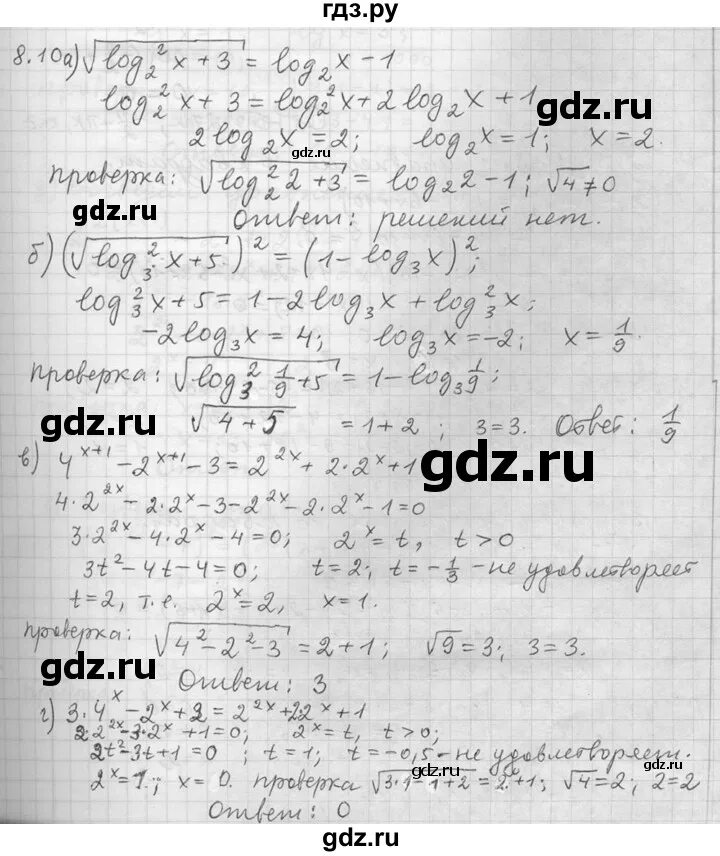 гдз.ру
8.10а) √(log₂²x + 3) = log₂x − 1
log₂²x + 3 = log₂²x + 2log₂x + 1
gdz.ru
2log₂x = 2; log₂x = 1; x = 2.
gdz.ru
проверка: √(log₂²2 + 3) = log₂2 − 1; √4 ≠ 0
gdz.ru
Ответ: решений нет.
б) (√(log₃²x + 5))² = (1 − log₃x)²;
log₃²x + 5 = 1 − 2log₃x + log₃²x;
−2log₃x = 4; log₃x = −2; x = 1/9.
gdz.ru
проверка: √(log₃² 1/9 + 5) = 1 − log₃ 1/9;
gdz.ru
√(4 + 5) = 1 + 2; 3 = 3. Ответ: 1/9
в) 4ˣ⁺¹ − 2ˣ⁺¹ − 3 = 2²ˣ + 2·2ˣ + 1
gdz.ru
4·2²ˣ − 2·2ˣ − 3 − 2²ˣ − 2·2ˣ − 1 = 0
3·2²ˣ − 4·2ˣ − 4 = 0; 2ˣ = t, t > 0
3t² − 4t − 4 = 0; t = 2; t = −1/3 − не удовлетворяет
t = 2, т.е. 2ˣ = 2, x = 1.
gdz.ru
проверка: √(4² − 2² − 3) = 2 + 1; √9 = 3; 3 = 3.
gdz.ru
Ответ: 3
г) 3·4ˣ − 2ˣ + 2 = 2²ˣ + 2·2ˣ + 1
2·2²ˣ − 3·2ˣ + 1 = 0; 2ˣ = t, t > 0;
gdz.ru
2t² − 3t + 1 = 0; t = 1; t = −0,5 − не удовлетворяет.
2ˣ = 1; x = 0. проверка √(3·1 − 1 + 2) = 2⁰ + 1; √4 = 2; 2 = 2
gdz.ru
Ответ: 0
gdz.ru